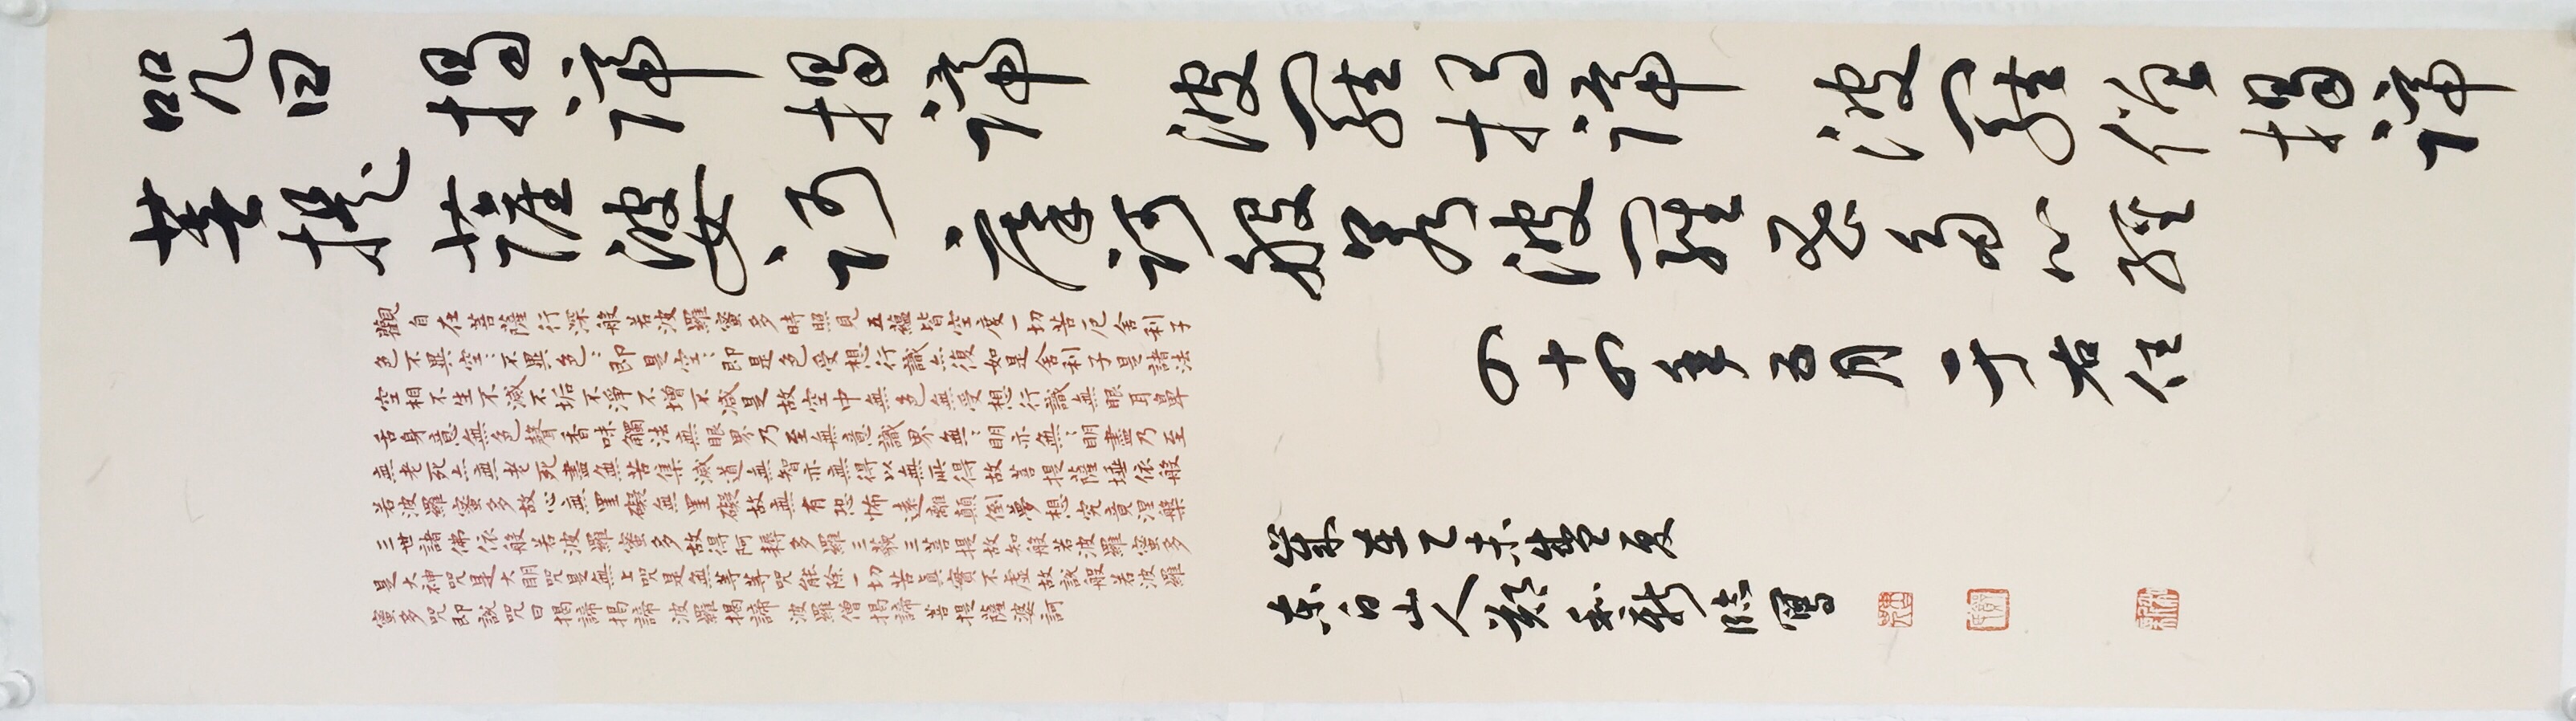 咒曰揭諦揭諦波羅揭諦波羅僧揭諦
菩提薩婆訶摩訶般若波羅蜜多心經
四十四年五月 于右任
觀自在菩薩行深般若波羅蜜多時照見五蘊皆空度一切苦厄舍利子
色不異空:不異色:即是空:即是色受想行識亦復如是舍利子是諸法
空相不生不滅不垢不淨不增不减是故空中無色無受想行識無眼耳鼻
舌身意無色聲香味觸法無眼界乃至無意識界無:明亦無:明盡乃至
無老死亦無老死盡無苦集滅道無智亦無得以無所得故菩提薩埵依般
若波羅蜜多故心無罣礙無罣礙故無有恐怖遠離顛倒夢想究竟涅槃
三世諸佛依般若波羅蜜多故得阿耨多羅三藐三菩提故知般若波羅蜜多
是大神咒是大明咒是無上咒是無等等咒能除一切苦真實不虛故說般若波羅
蜜多咒即說咒曰揭諦揭諦波羅揭諦波羅僧揭諦菩提薩婆訶
歲在乙未盛夏
东台山人鄭利新臨寫